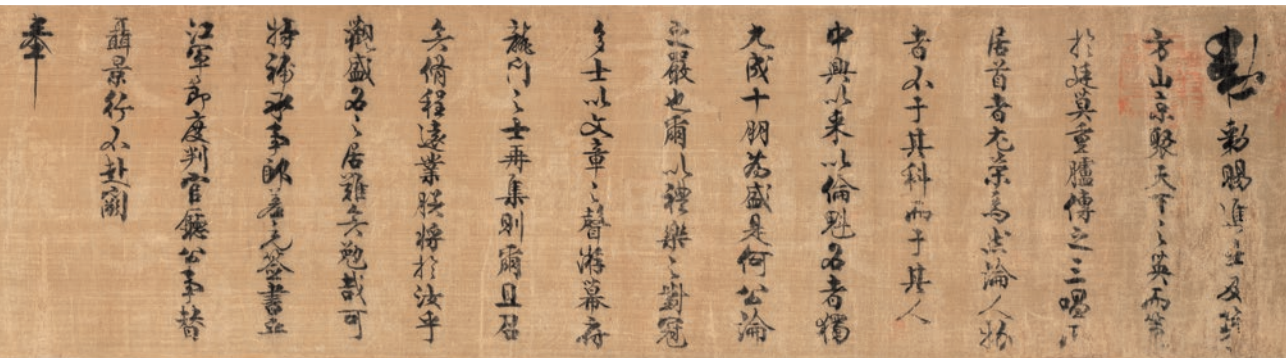 敕賜進士及第
方山京聚天下之英而策
於廷莫重臚傳之三唱而
居首者尤榮焉然論人物
者不于其科而于其人
中興以来以倫魁名者獨
九成十朋為盛是何公論
之嚴也爾以禮樂之對冠
多士以文章之聲游幕府
龍門之士再集則爾且召
矣脩程遠業朕將於汝乎
觀盛名之居難矣勉哉可
特補承事郎差充簽書
江軍節度判官廳公事替
聶景行不赴闕
奉